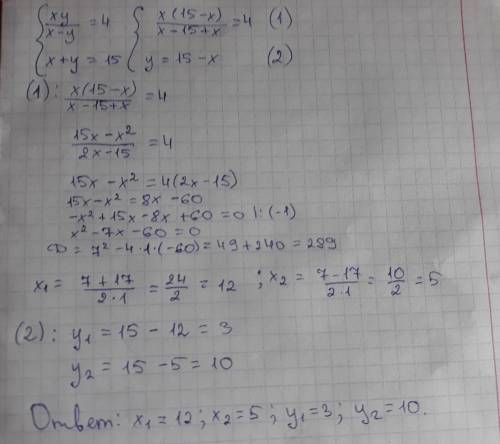 { xy/(x-y) = 4 { x(15-x)/(x-15+x) = 4 (1)
{ x+y = 15 { y = 15-x (2)
(1): x(15-x)/(x-15+x) = 4
(15x-x²)/(2x-15) = 4
15x - x² = 4(2x-15)
15x-x² = 8x - 60
-x² + 15x - 8x + 60 = 0 |:(-1)
x² - 7x - 60 = 0
D = 7² - 4·1·(-60) = 49 + 240 = 289
x₁ = (7+17)/(2·1) = 24/2 = 12 ; x₂ = (7-17)/(2·1) = 10/2 = 5
(2): y₁ = 15 - 12 = 3
y₂ = 15 - 5 = 10
Ответ: x₁ = 12; x₂ = 5; y₁ = 3; y₂ = 10.